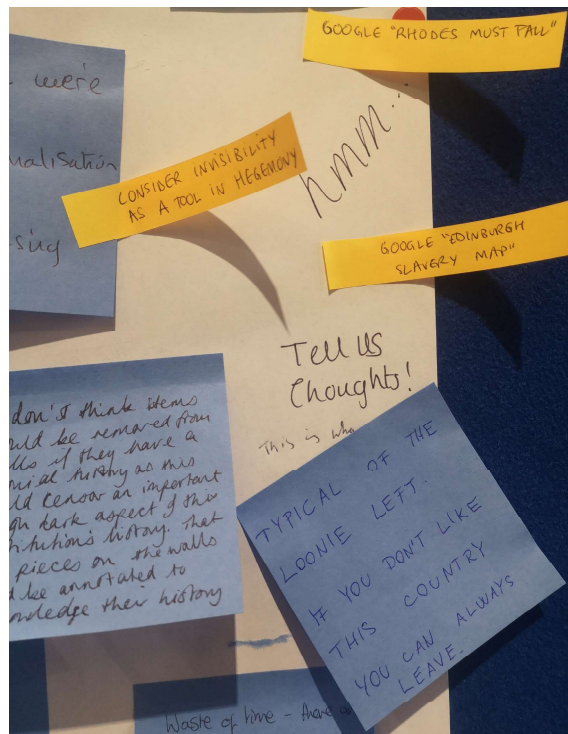 GOOGLE "RHODES MUST FALL"
were
hmm...
nalisation
CONSIDER INVISIBILITY
AS A TOOL IN HEGEMONY
sing
GOOGLE "EDINBURGH
SLAVERY MAP"
Tell us
thoughts!
This is wha
don't think items
uld be removed from
lls if they have a
nial history as this
ld censor an important
gh dark aspect of this
titution's history. That
pieces on the walls
d be annotated to
owledge their history
TYPICAL OF THE
LOONIE LEFT.
IF YOU DON'T LIKE
THIS COUNTRY
YOU CAN ALWAYS
LEAVE.
Waste of time - there a